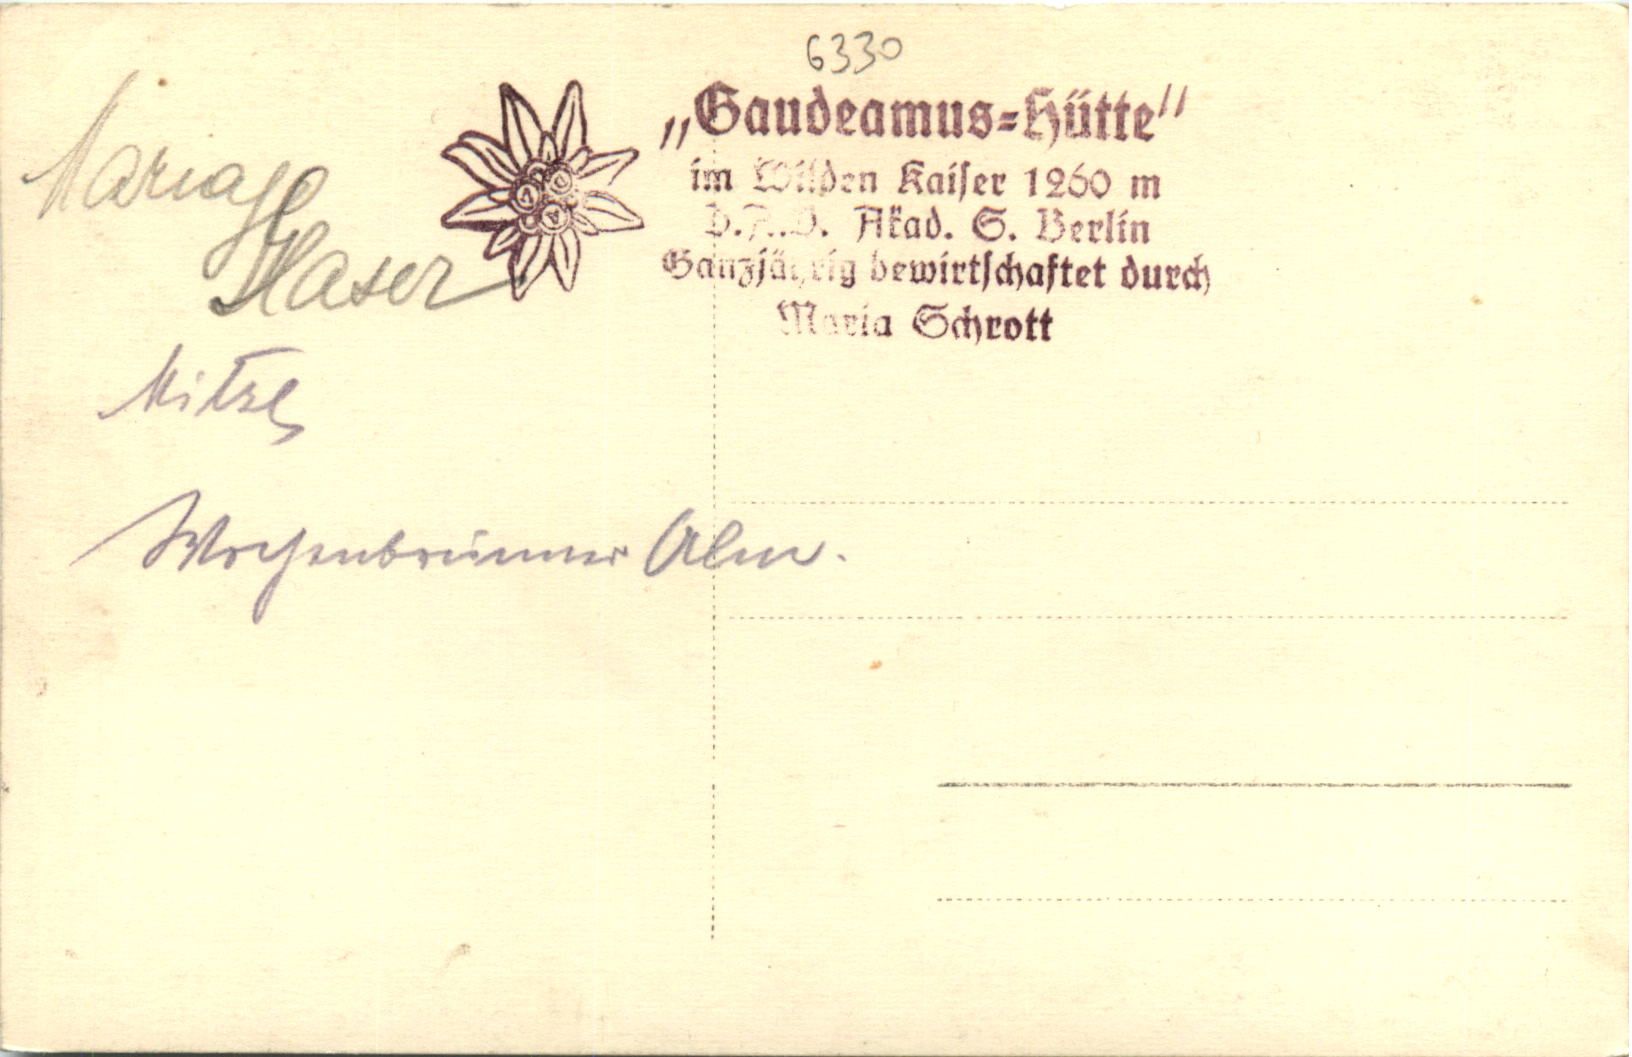 6330
„Gaudeamus=Hütte"
im Wilden Kaiser 1260 m
D.A.V. Akad. S. Berlin
Ganzjährig bewirtschaftet durch
Maria Schrott
D
V
A
Maria
Haser
Mitzl
Wochenbrunner Alm.